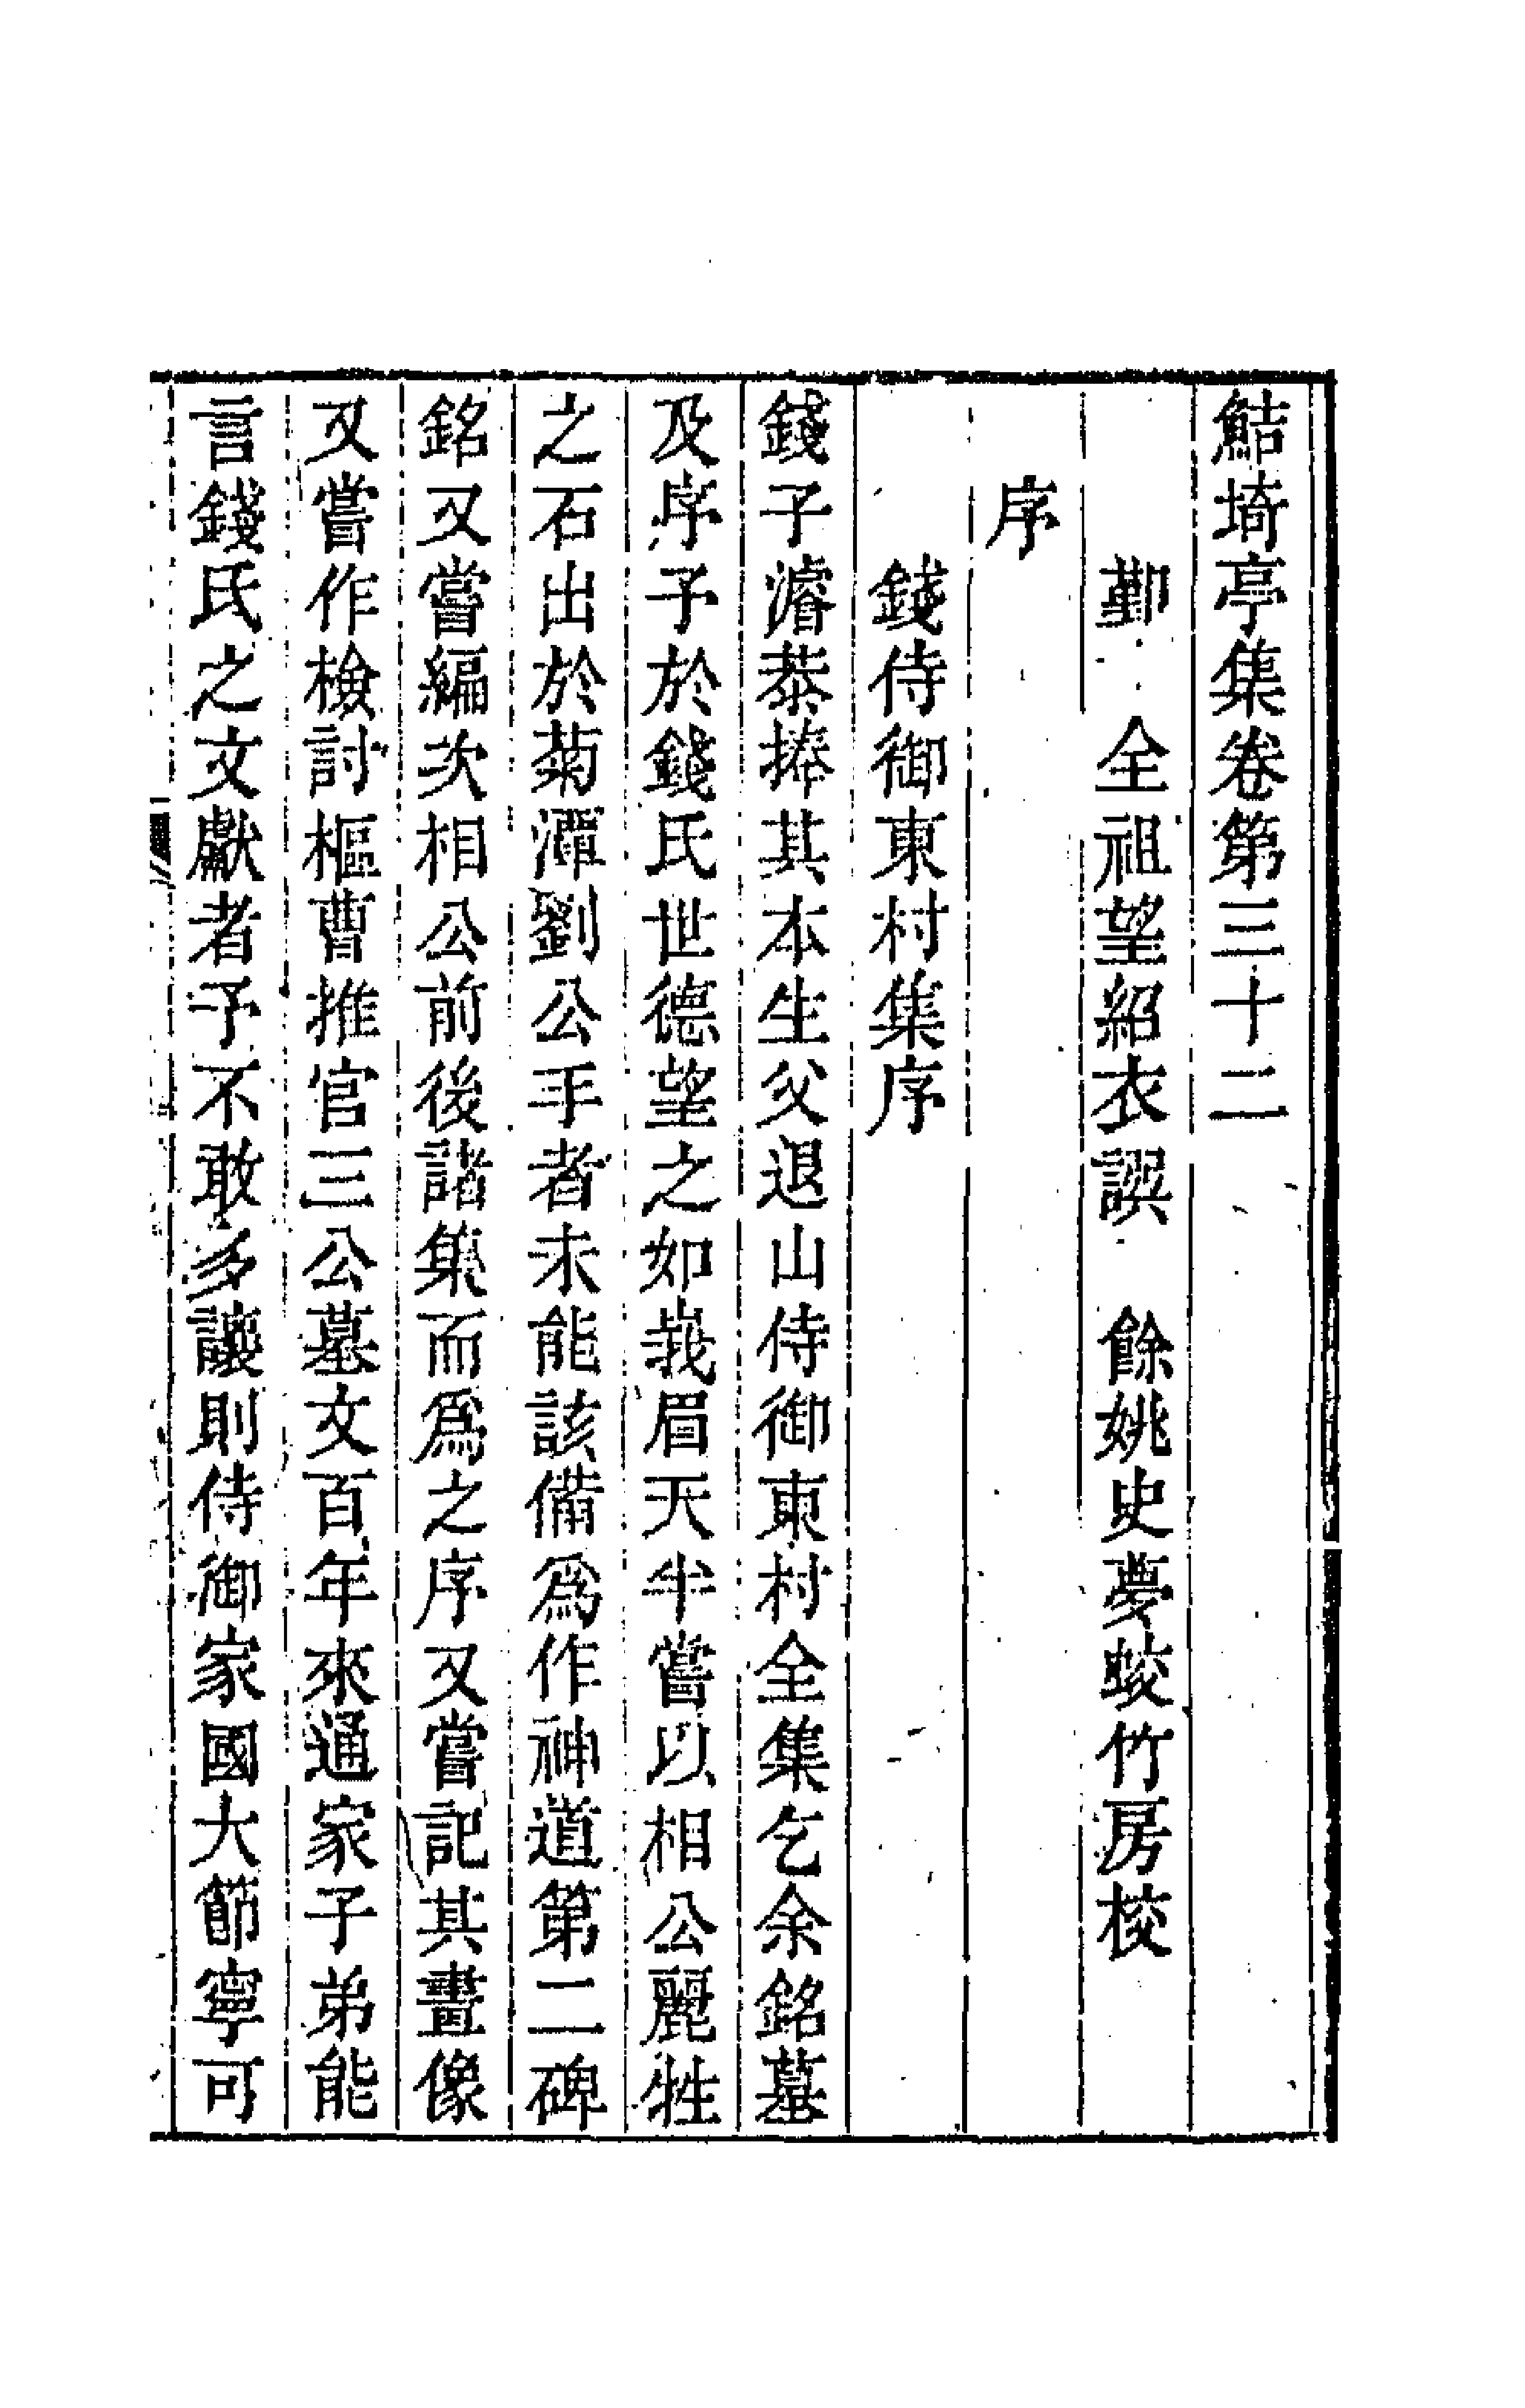 鮚埼亭集卷第三十二
鄞 全祖望紹衣譔 餘姚史夢蛟竹房校
序
錢侍御東村集序
錢子濬恭捧其本生父退山侍御東村全集乞余銘墓
及序予於錢氏世德望之如峩眉天半嘗以相公麗牲
之石出於菊潭劉公手者未能該備爲作神道第二碑
銘又嘗編次相公前後諸集而爲之序又嘗記其畫像
又嘗作檢討樞曹推官三公墓文百年來通家子弟能
言錢氏之文獻者予不敢多讓則侍御家國大節寧可